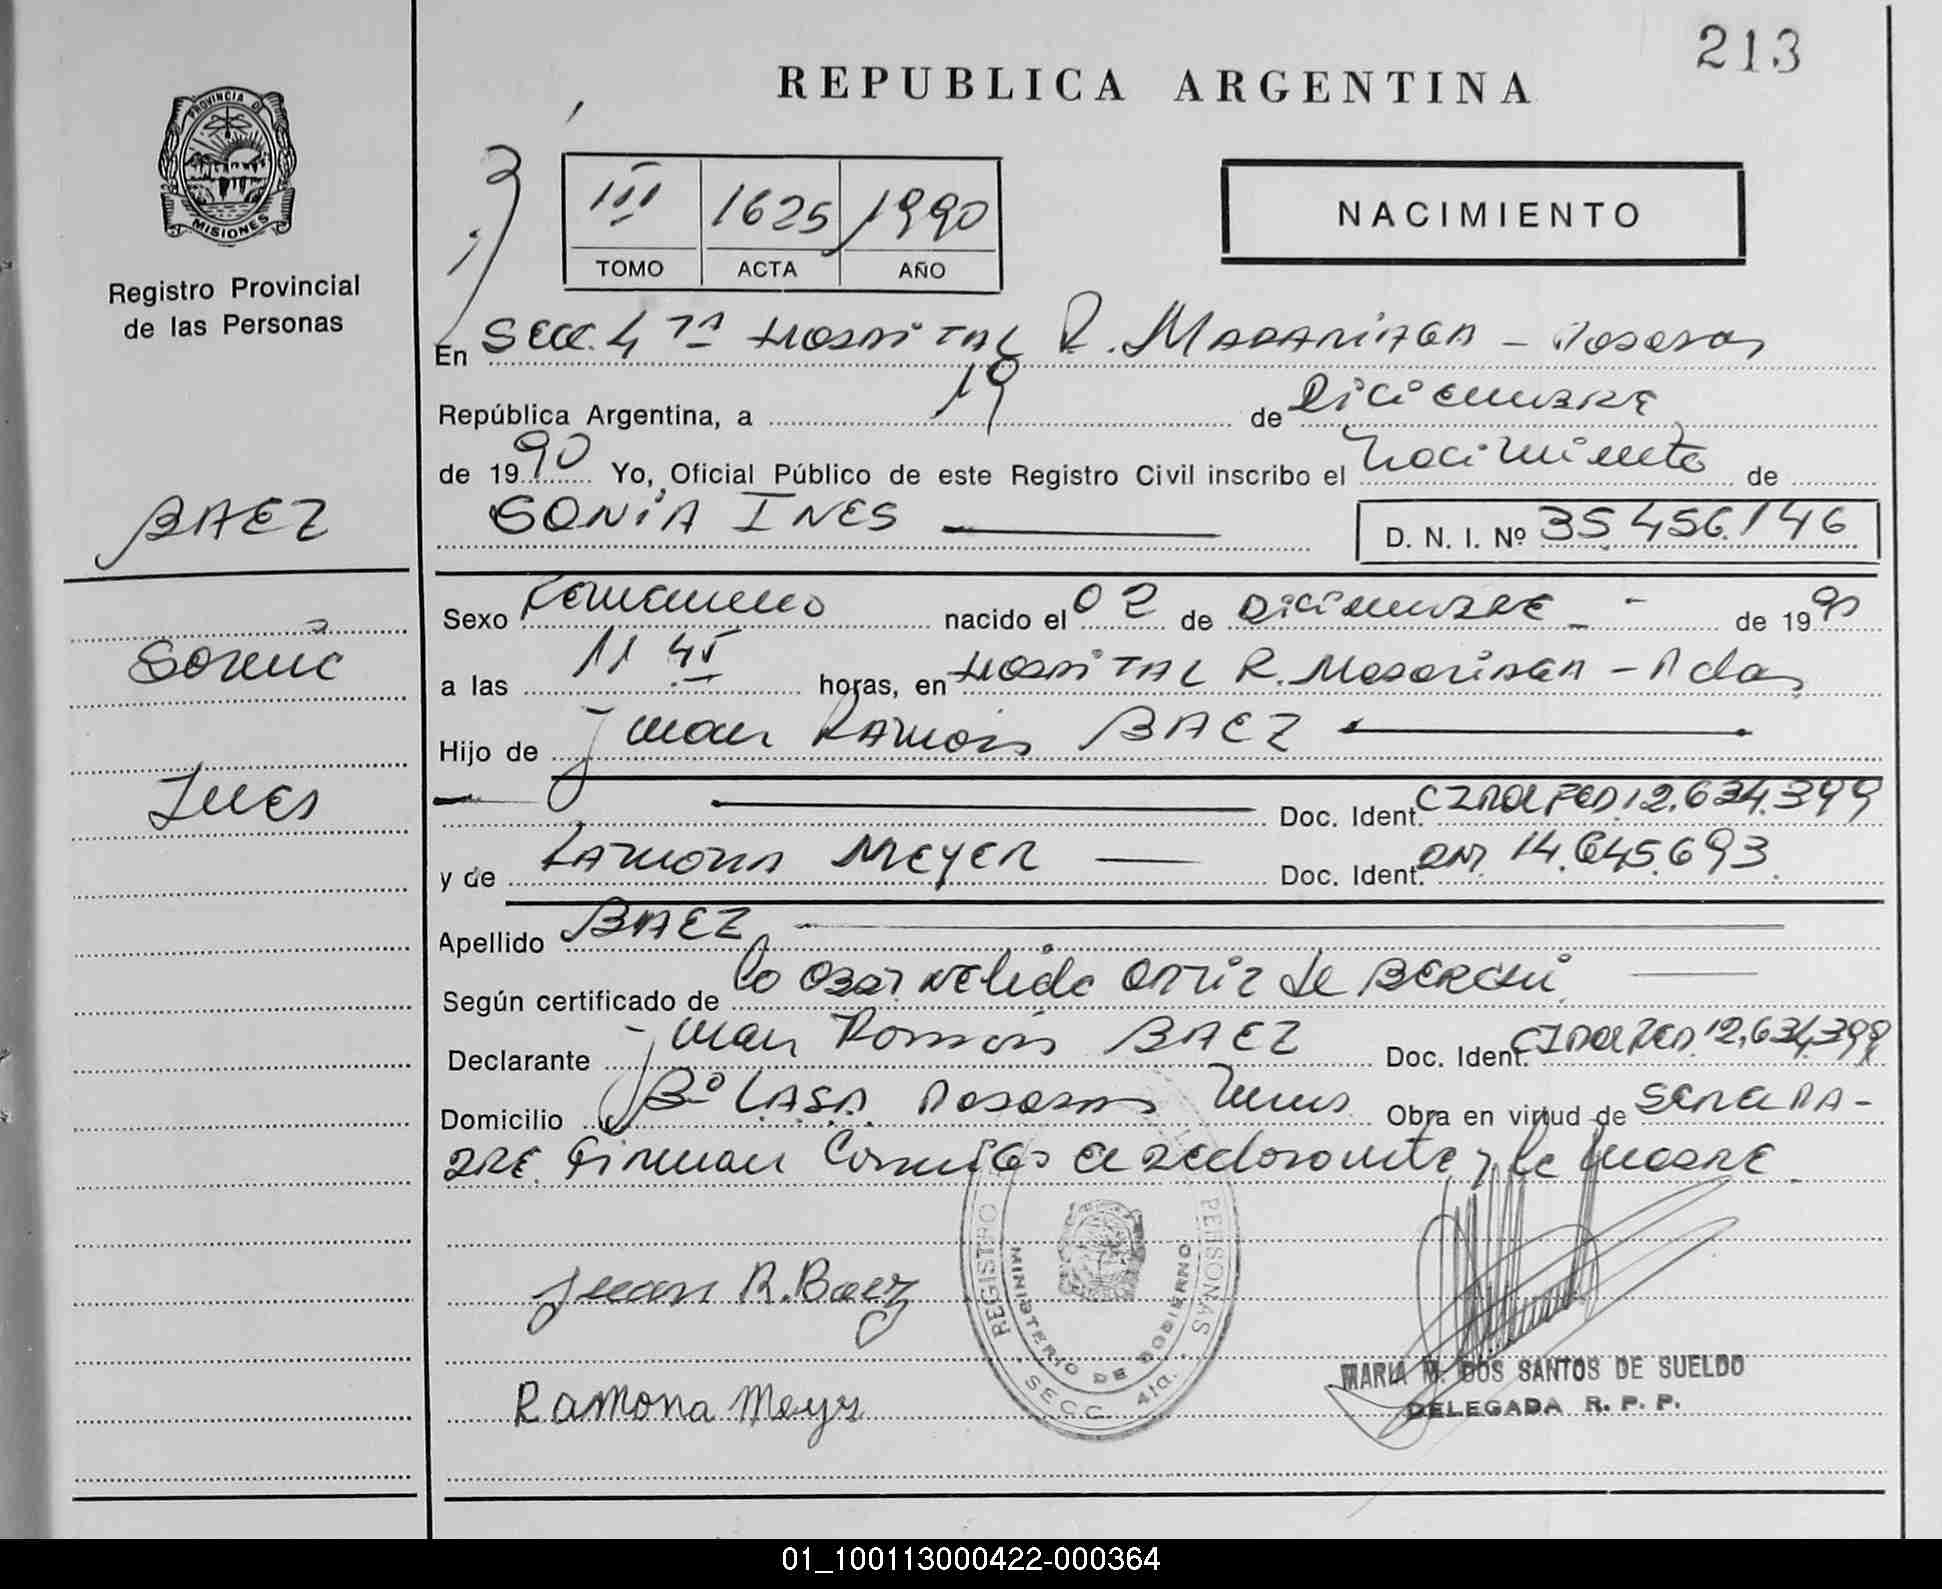 213
REPUBLICA ARGENTINA
PROVINCIA D
MISIONES
Registro Provincial
de las Personas
III 1625 1990
TOMO ACTA AÑO
NACIMIENTO
En Secc. 4ta Hospital R. Madariaga - Posadas
República Argentina, a 19 de Diciembre
de 1990 Yo, Oficial Público de este Registro Civil inscribo el Nacimiento de
SONIA INES D. N. I. Nº 35.456.146
BAEZ
Sonia
Ines
Sexo Femenino nacido el 02 de Diciembre de 1990
a las 11 45 horas, en Hospital R. Madariaga - Pdas
Hijo de Juan Ramón BAEZ
Doc. Ident. 12.634.399
y de Ramona MEYER Doc. Ident. 14.645.693
Apellido BAEZ
Según certificado de la Obst Nelida Ortiz de
Declarante Juan Ramón BAEZ Doc. Ident. 12.634.399
Domicilio Bº Posadas Obra en virtud de Ser el pa-
dre. Firman Conmigo el declarante y la madre
Juan R. Baez
Ramona Meyr
REGISTRO PERSONAS
MINISTERIO DE GOBIERNO
SECC. 4ta.
MARIA M. DOS SANTOS DE SUELDO
DELEGADA R. P. P.
01_100113000422-000364